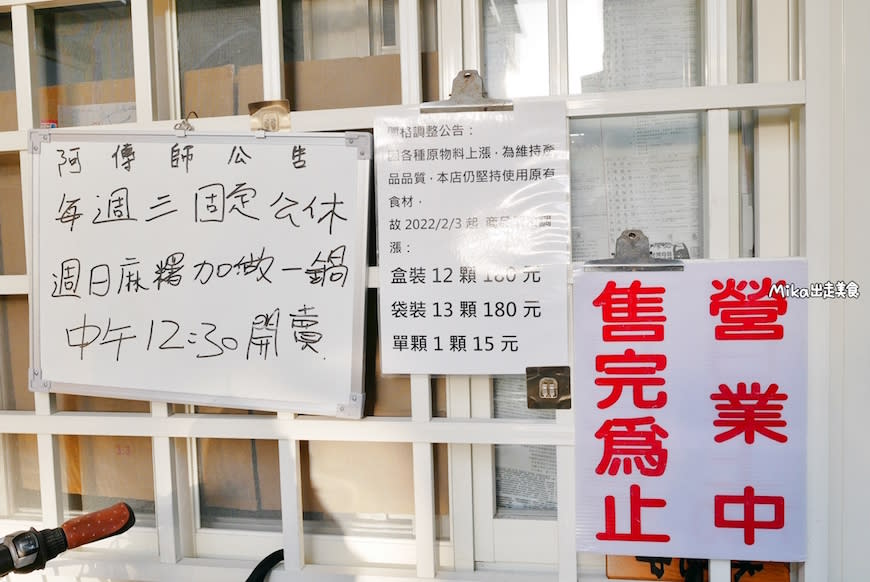 阿傳師公告
每週三固定公休
週日麻糬加做一鍋
中午12:30開賣
格調整公告：
因各種原物料上漲，為維持產
品品質，本店仍堅持使用原有
食材，
故 2022/2/3 起 商品
調
漲：
盒裝 12 顆 180 元
袋裝 13 顆 180 元
單顆 1 顆 15 元
營業中
售完為止
Mika出走美食